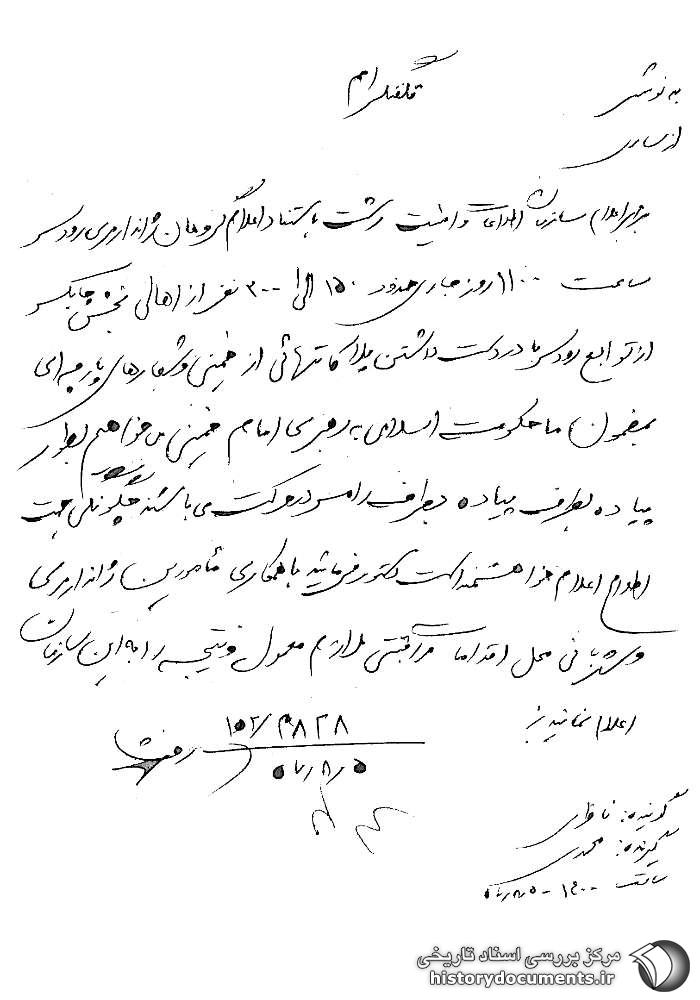 تلفنگرام
به نوشهر
از ساری
برابر اعلام سازمان اطلاعات و امنیت رشت باستناد اعلام گروهان ژاندارمری رودسر
ساعت ۱۱۰۰ روز جاری حدود ۱۵۰ الی ۳۰۰ نفر از اهالی بخش چابکسر
از توابع رودسر با در دست داشتن پلاکاتهائی از خمینی و شعارهای پارچه‌ای
بمضمون ما حکومت اسلامی به رهبری امام خمینی می‌خواهیم بطور
پیاده بطرف پیاده بطرف رامسر در حرکت می باشند چگونگی جهت
اعلام خواهشمند است دستور فرمائید با همکاری مأمورین ژاندارمری
و شهربانی محل اقدامات مراقبتی لازم معمول و نتیجه را به این سازمان
اعلام نمائید
۱۵۲/۳۸۲۸
۵۷/۸/۵
گوینده: ناظری
گیرنده: محمدی
ساعت ۱۳۰۰ - ۵۷/۸/۵
مرکز بررسی اسناد تاریخی
historydocuments.ir